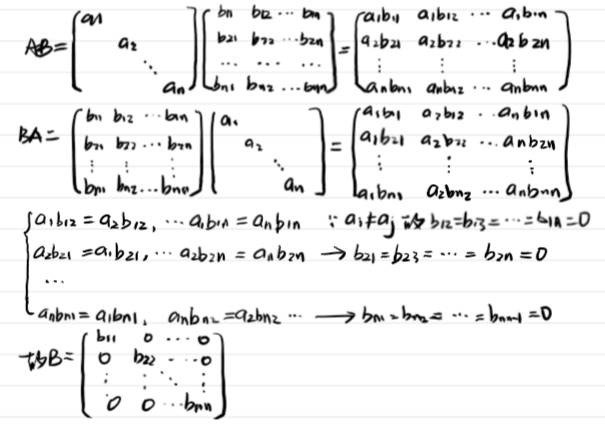 AB = [a1 a2 ⋱ an] [b11 b12 ⋯ b1n; b21 b22 ⋯ b2n; ⋯ ⋯ ⋯; bn1 bn2 ⋯ bnn] = [a1b11 a1b12 ⋯ a1b1n; a2b21 a2b22 ⋯ a2b2n; ⋮ ⋮ ⋮; anbn1 anbn2 ⋯ anbnn]
BA = [b11 b12 ⋯ b1n; b21 b22 ⋯ b2n; ⋮ ⋮ ⋮; bn1 bn2 ⋯ bnn] [a1 a2 ⋱ an] = [a1b11 a2b12 ⋯ anb1n; a1b21 a2b22 ⋯ anb2n; ⋮ ⋮ ⋮; a1bn1 a2bn2 ⋯ anbnn]
{ a1b12 = a2b12, ⋯ a1b1n = anb1n ∵ ai≠aj 故 b12=b13=⋯=b1n=0
a2b21 = a1b21, ⋯ a2b2n = anb2n → b21=b23=⋯=b2n=0
⋯
anbn1 = a1bn1, anbn2 = a2bn2 ⋯ → bn1=bn2=⋯=bnn-1=0
故B = [b11 0 ⋯ 0; 0 b22 ⋯ 0; ⋮ ⋮ ⋱ ⋮; 0 0 ⋯ bnn]